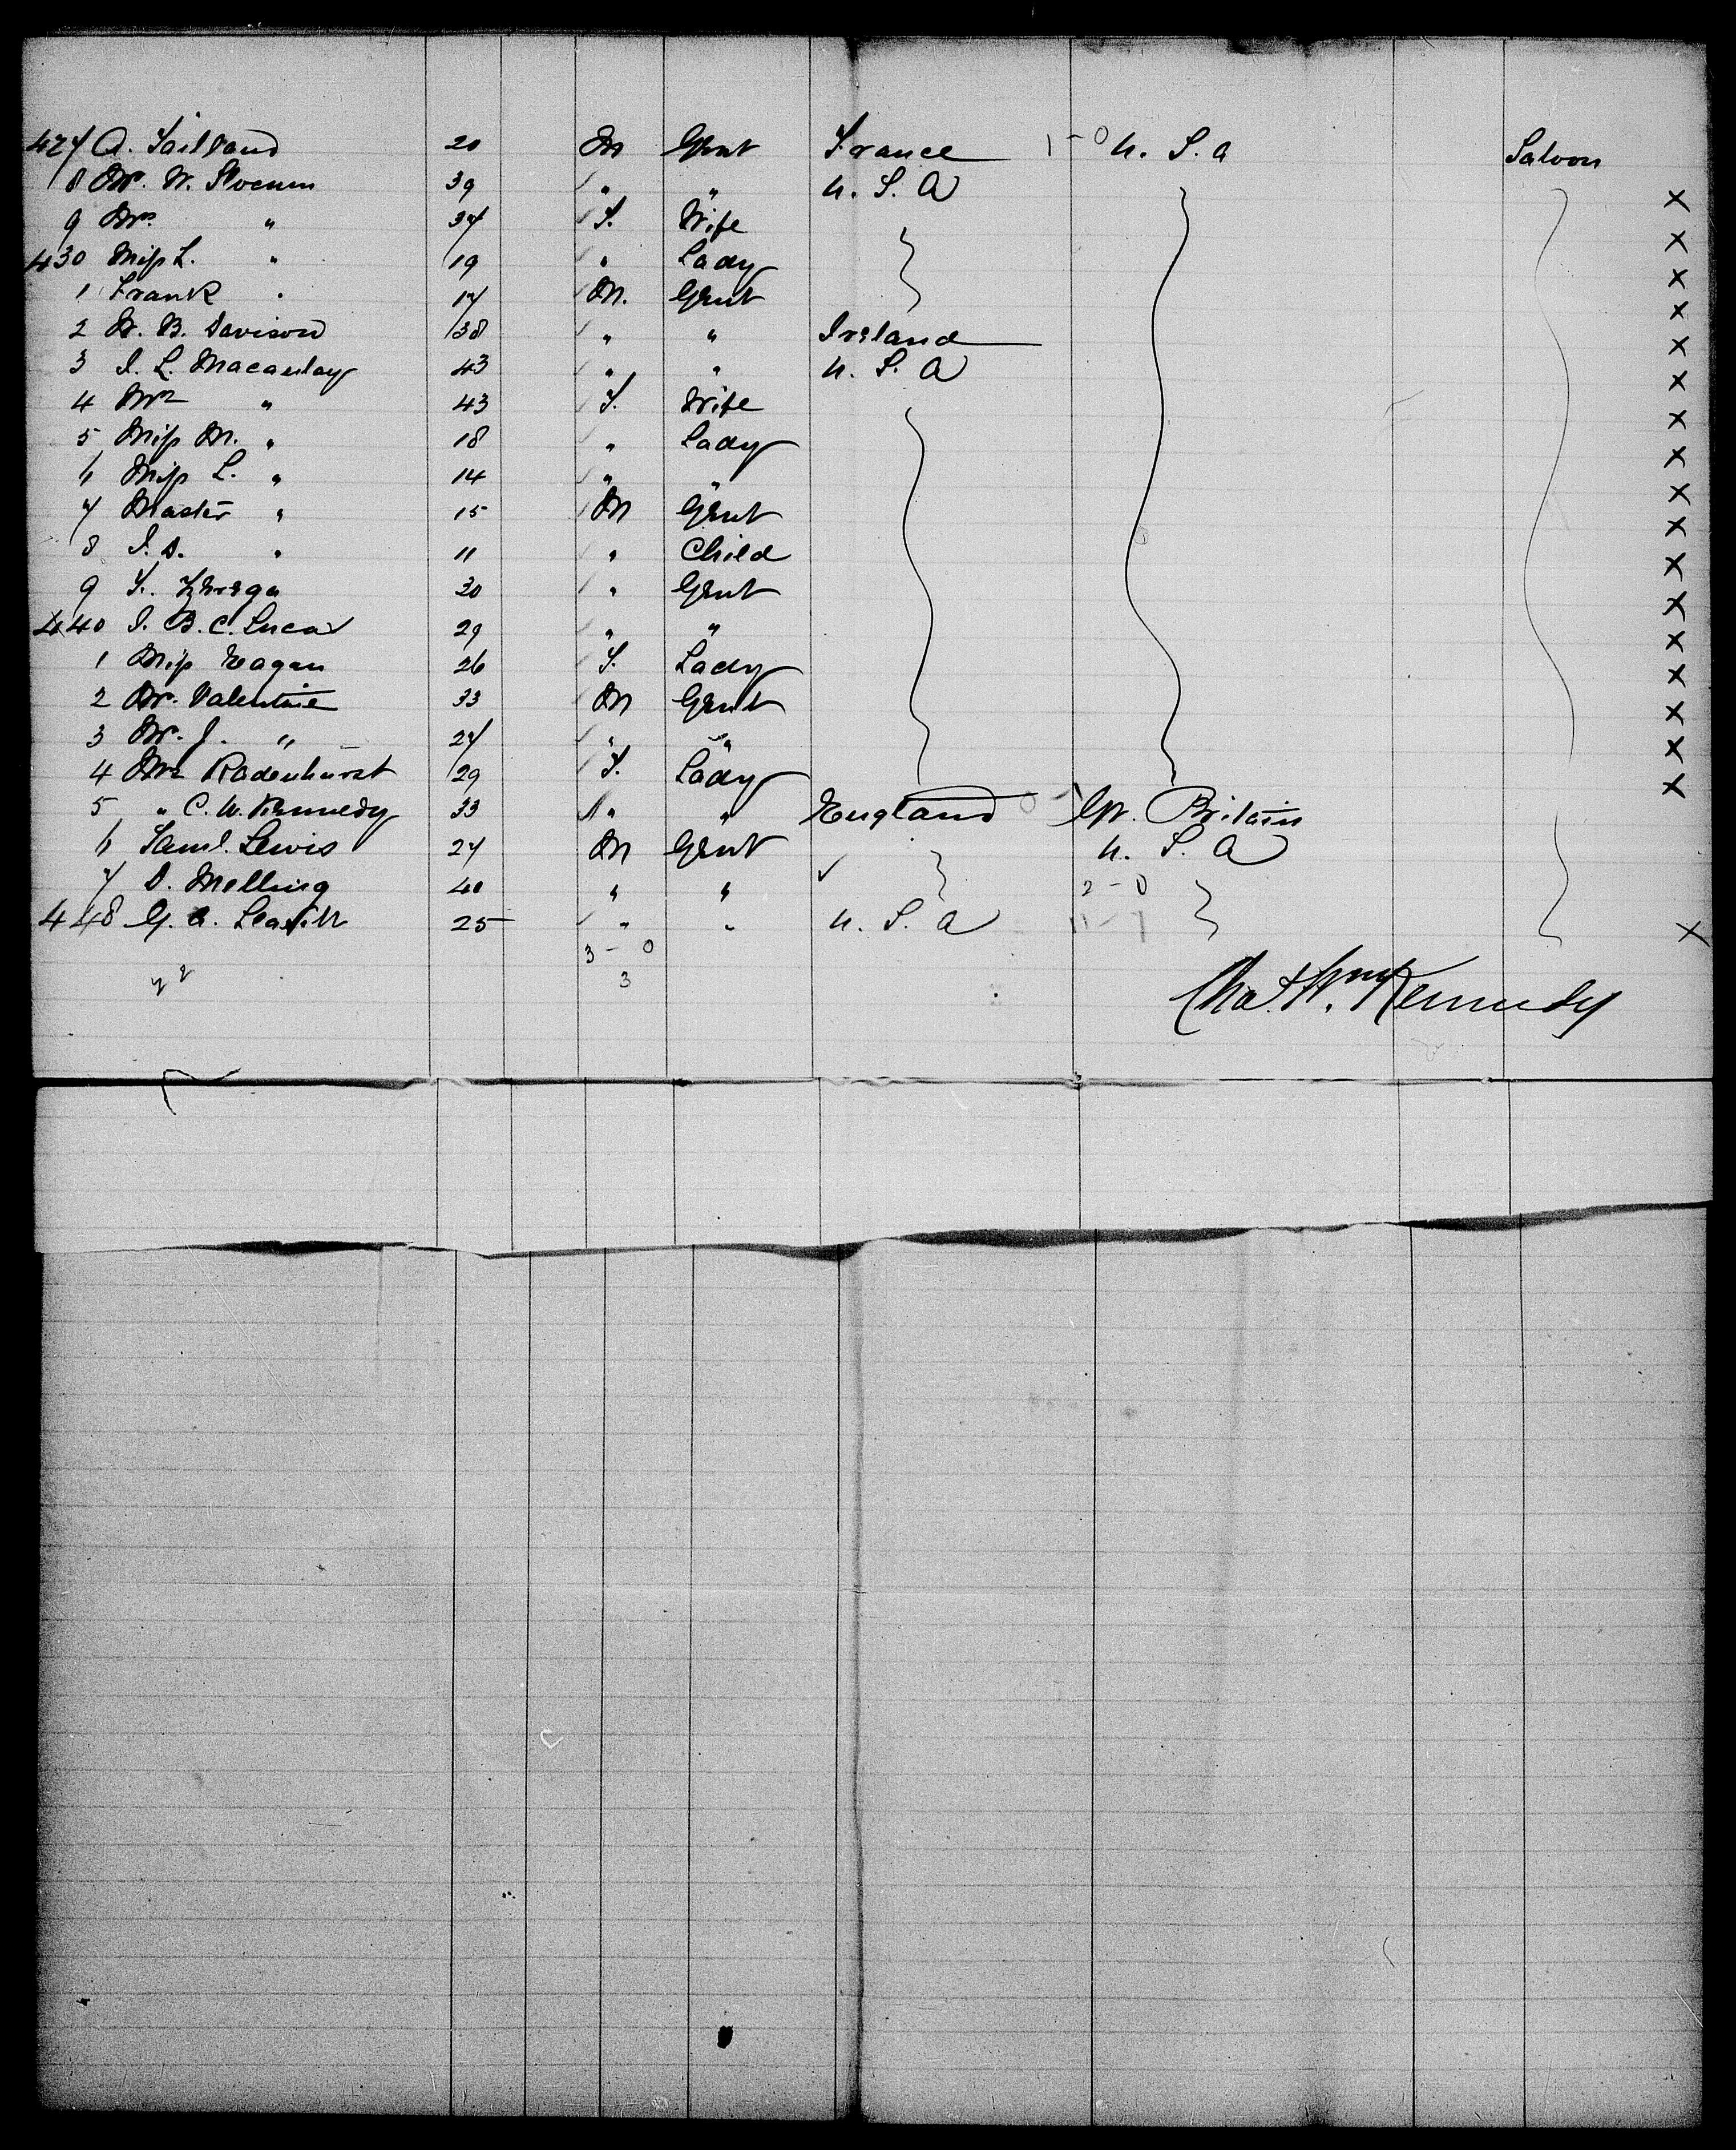 427 A. Sailland 20 M Gent France 1-0 U. S. A Saloon
8 Mr. W. Slocum 39 " " U. S. A X
9 Mrs " 37 F. Wife X
430 Miss L. " 19 " Lady X
1 Frank " 17 M. Gent X
2 W. B. Davison 38 " " Ireland X
3 J. L. Macaulay 43 " " U. S. A X
4 Mrs " 43 F. Wife X
5 Miss M. " 18 " Lady X
6 Miss L. " 14 " " X
7 Master " 15 M Gent X
8 J. D. " 11 " Child X
9 F. 30 " Gent X
440 J. B. C. Lucas 29 " " X
1 Miss Eagan 26 F. Lady X
2 Mr. Valentine 33 M Gent X
3 Mr. J. " 27 " " X
4 Mrs Radenhurst 29 F. Lady X
5 " C. W. Kennedy 33 " " England Gr. Britain
6 Saml. Lewis 27 M Gent U. S. A
7 D. Melling 40 " " 2-0
448 G. A. Leavitt 25 " " U. S. A X
3-0
3
Chas Wm. Kennedy